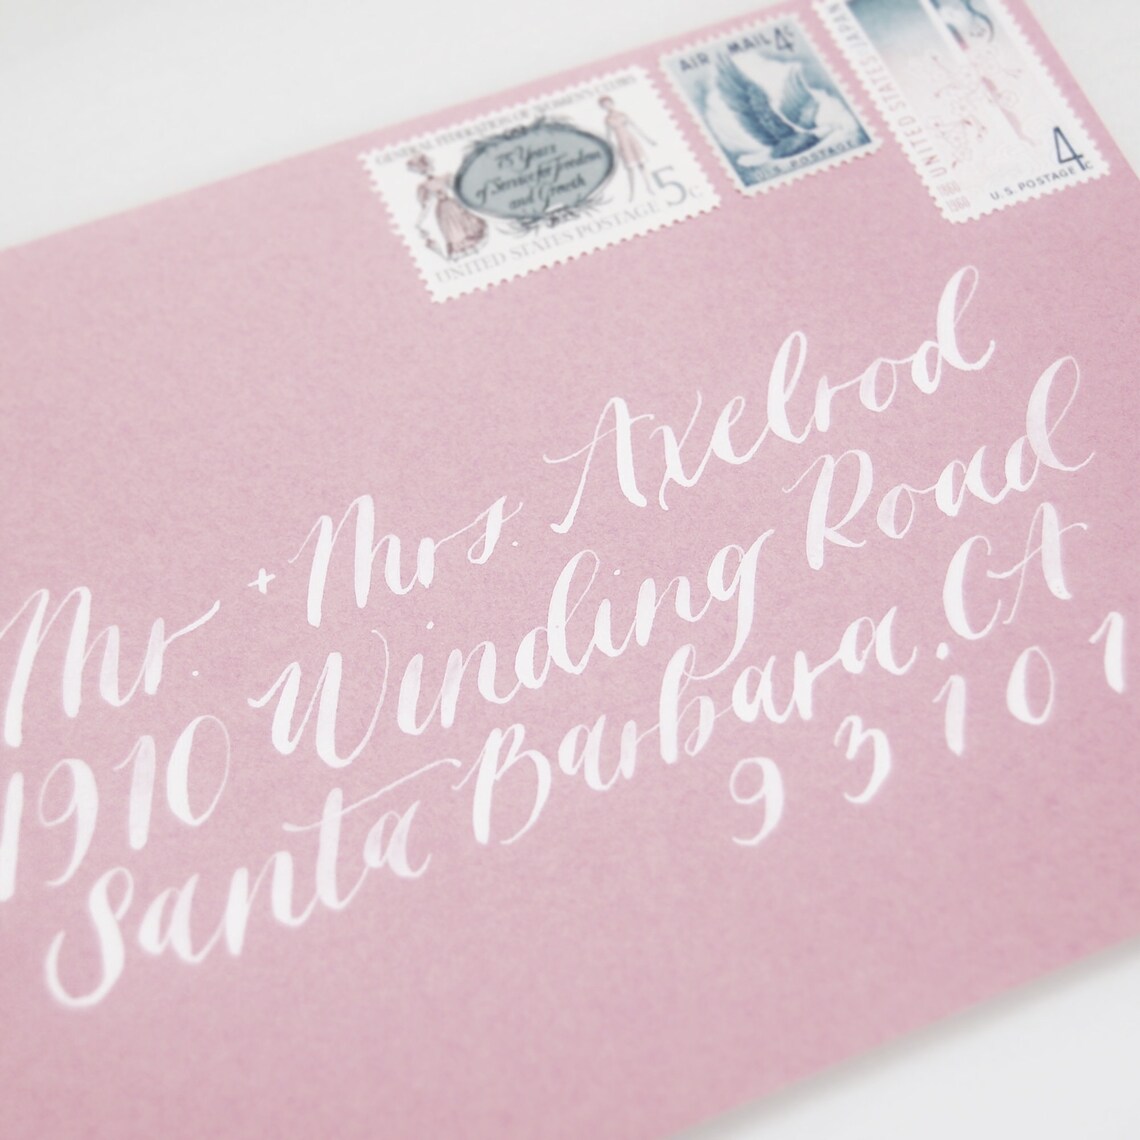 GENERAL FEDERATION OF WOMEN'S CLUBS
75 Years
of Service for Freedom
and Growth
5c
UNITED STATES POSTAGE
AIR MAIL 4c
U.S. POSTAGE
UNITED STATES/JAPAN
1860
1960
4c
U.S. POSTAGE
Mr. + Mrs. Axelrod
1910 Winding Road
Santa Barbara. CA
93101